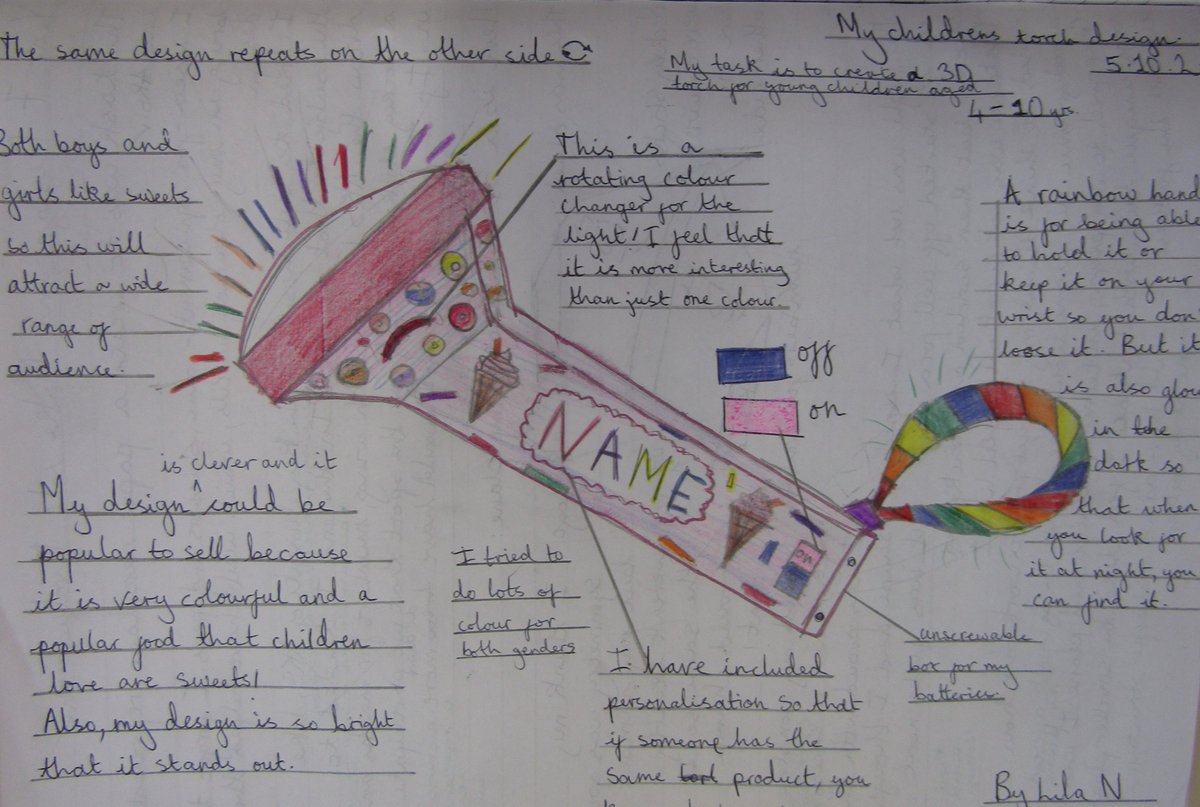 The same design repeats on the other side
My childrens torch design.
5.10.2
My task is to create a 3D
torch for young children aged
4-10 yrs.
Both boys and
girls like sweets
so this will
attract a wide
range of
audience.
This is a
rotating colour
changer for the
light! I feel that
it is more interesting
than just one colour.
A rainbow hand
is for being able
to hold it or
keep it on your
wrist so you don'
loose it. But it
is also glow
in the
dark so
that when
you look for
it at night, you
can find it.
off
on
NAME
ON
is clever and it
My design ^ could be
popular to sell because
it is very colourful and a
popular food that children
love are sweets!
Also, my design is so bright
that it stands out.
I tried to
do lots of
colour for
both genders
I have included
personalisation so that
if someone has the
same product, you
unscrewable
box for my
batteries.
By Lila N